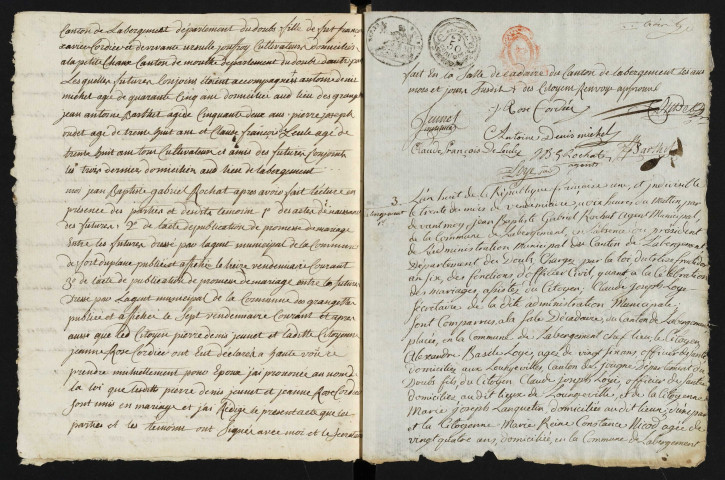 Canton de Labergement département du doubs fille de feu franc
xavier Cordiée et de vivante ursulle jouffroy Cultivateurs domiciliés
ala petite Chaux Canton de mouthe departement du doubs dautre part
Lesquelles futures Conjoin étoient accompagnés antoine denis
michel agé de quarante Cinq ans domiciliée aux lieu des granges
jean antoine Barthet agée de Cinquante deux ans pierre joseph
agé de trente huit ans et Claude françois Leule agé de
trente huit ans tous Cultivateur et amis des futures Conjoints
les trois dernier domiciliés aux lieu de labergement
moi jean Baptiste gabriel Rochat apres avoir fait lecture en
presence des parties et desdits temoins 1° des actes de naissance
des futures, 2° de lacte de publication de promesse de mariage
Entre les futures dressé par lagent municipal de la Commune
de fort du plasne publiée et affichée le treize vendemiaire Courant
3° de lacte de publication de promesse de mariage entre les futures
Dressé par Lagent municipal de la Commune des granges
publiée et affichée le Sept vendemiaire Courant et apres
aussi que les Citoyen pierre denis jeunet et laditte Citoyenne
jeanne Rose Cordiée ont Eut declarés a haute voix se
prendre mutuellement pour Epoux j'ai prononcé au nom de
la loi que lesdits pierre denis jeunet et jeanne Rose Cordiée
sont unis en mariage et j'ai Rédigé le present acte que les
parties et les temoins ont Signée avec moi et le Secretaire
fait en la Salle decadaire du Canton de labergement les ans
mois et jour Susdit des Citoyen Renvoye approuvé
j Rose Cordiée
jeunet
Antoine denis michel
Claude françois de Leule JBG Rochat
Loye agent
3. L'an huit de la République française une, et indivisible
le trente du mois de vendemiaire a dix heures du mattin par
devant moy Jean Baptiste Gabriel Rochat agent Municipal,
de la Commune de Labergement, en labsence du président
de Ladministration Municipal du Canton de Labergement
Département du Doubs Chargé par la loi du treize fructidor
an six, des fonctions d'officier Civil, quant à la Célébration
des mariages, assisté du Citoyen, Claude Joseph Loye
Secretaire de la dite administration Municipale;
Sont Comparus, a la Sale Décadaire, du Canton de Labergement
placée, en la Commune de Labergement chef lieu le Citoyen
Alexandre Basile Loye, agée de vingt six ans officier de santé
domiciliée aux Longevilles, Canton de Jougne Departement du
Doubs fils du Citoyen Claude Joseph Loye officier de santé
domiciliée au dit lieux de Longeville, et de la Citoyenne
Marie Joseph Lanquetin, domiciliée au dit lieux, d'une part
et la Citoyenne Marie Reine Constance Nicod agée de
vingt quatre ans, domiciliée, en la Commune de Labergement